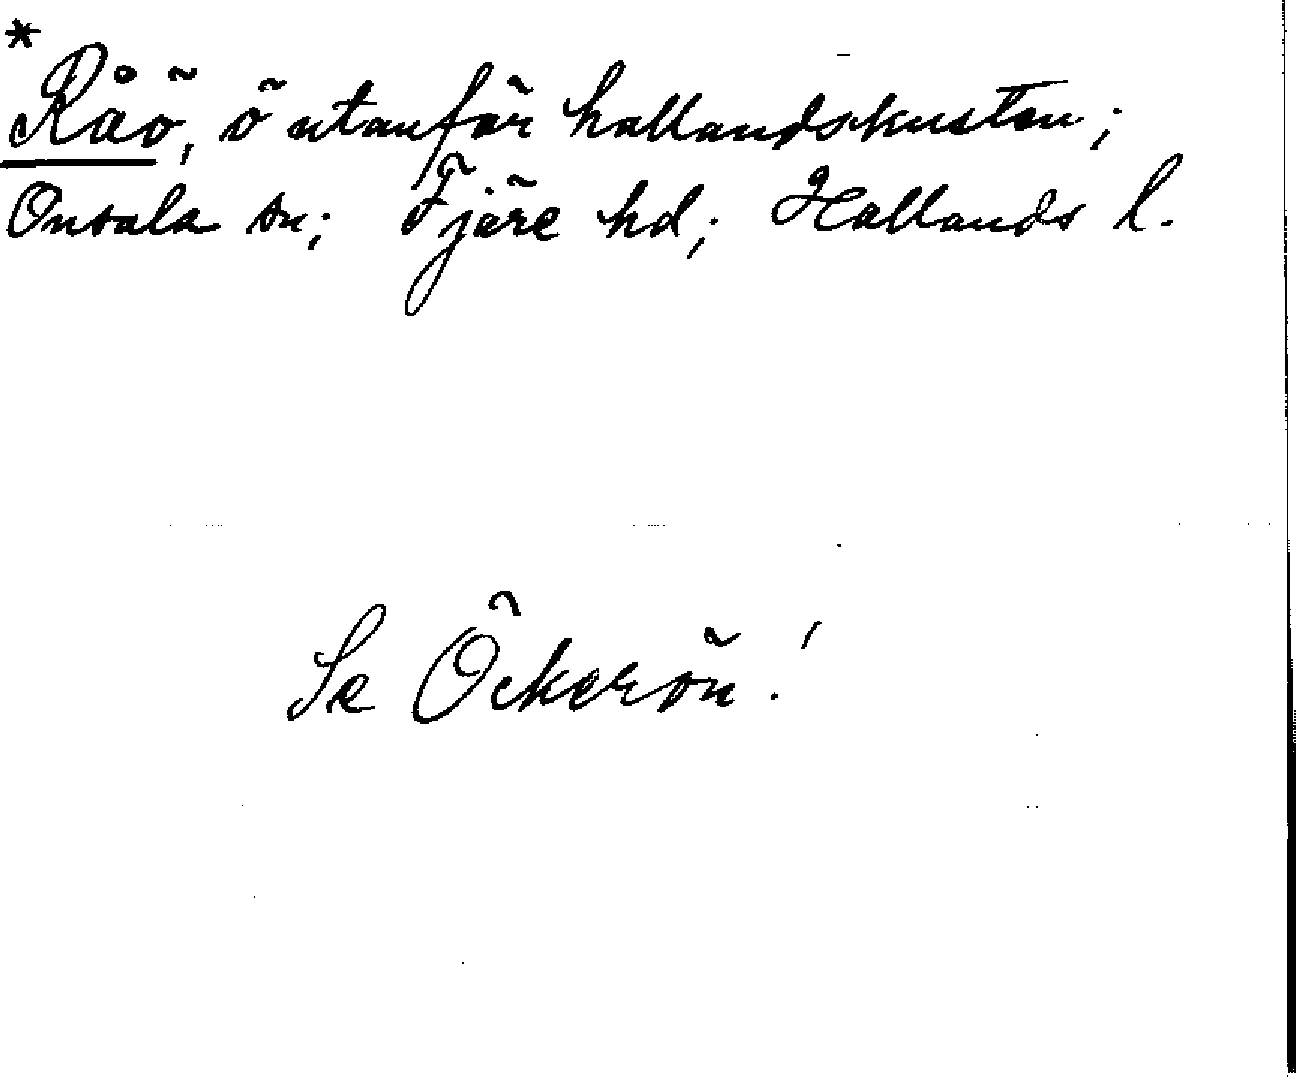 *
Råö, ö utanför hallandskusten;
Onsala sn; Fjäre hd; Hallands l.
Se Öckerön!